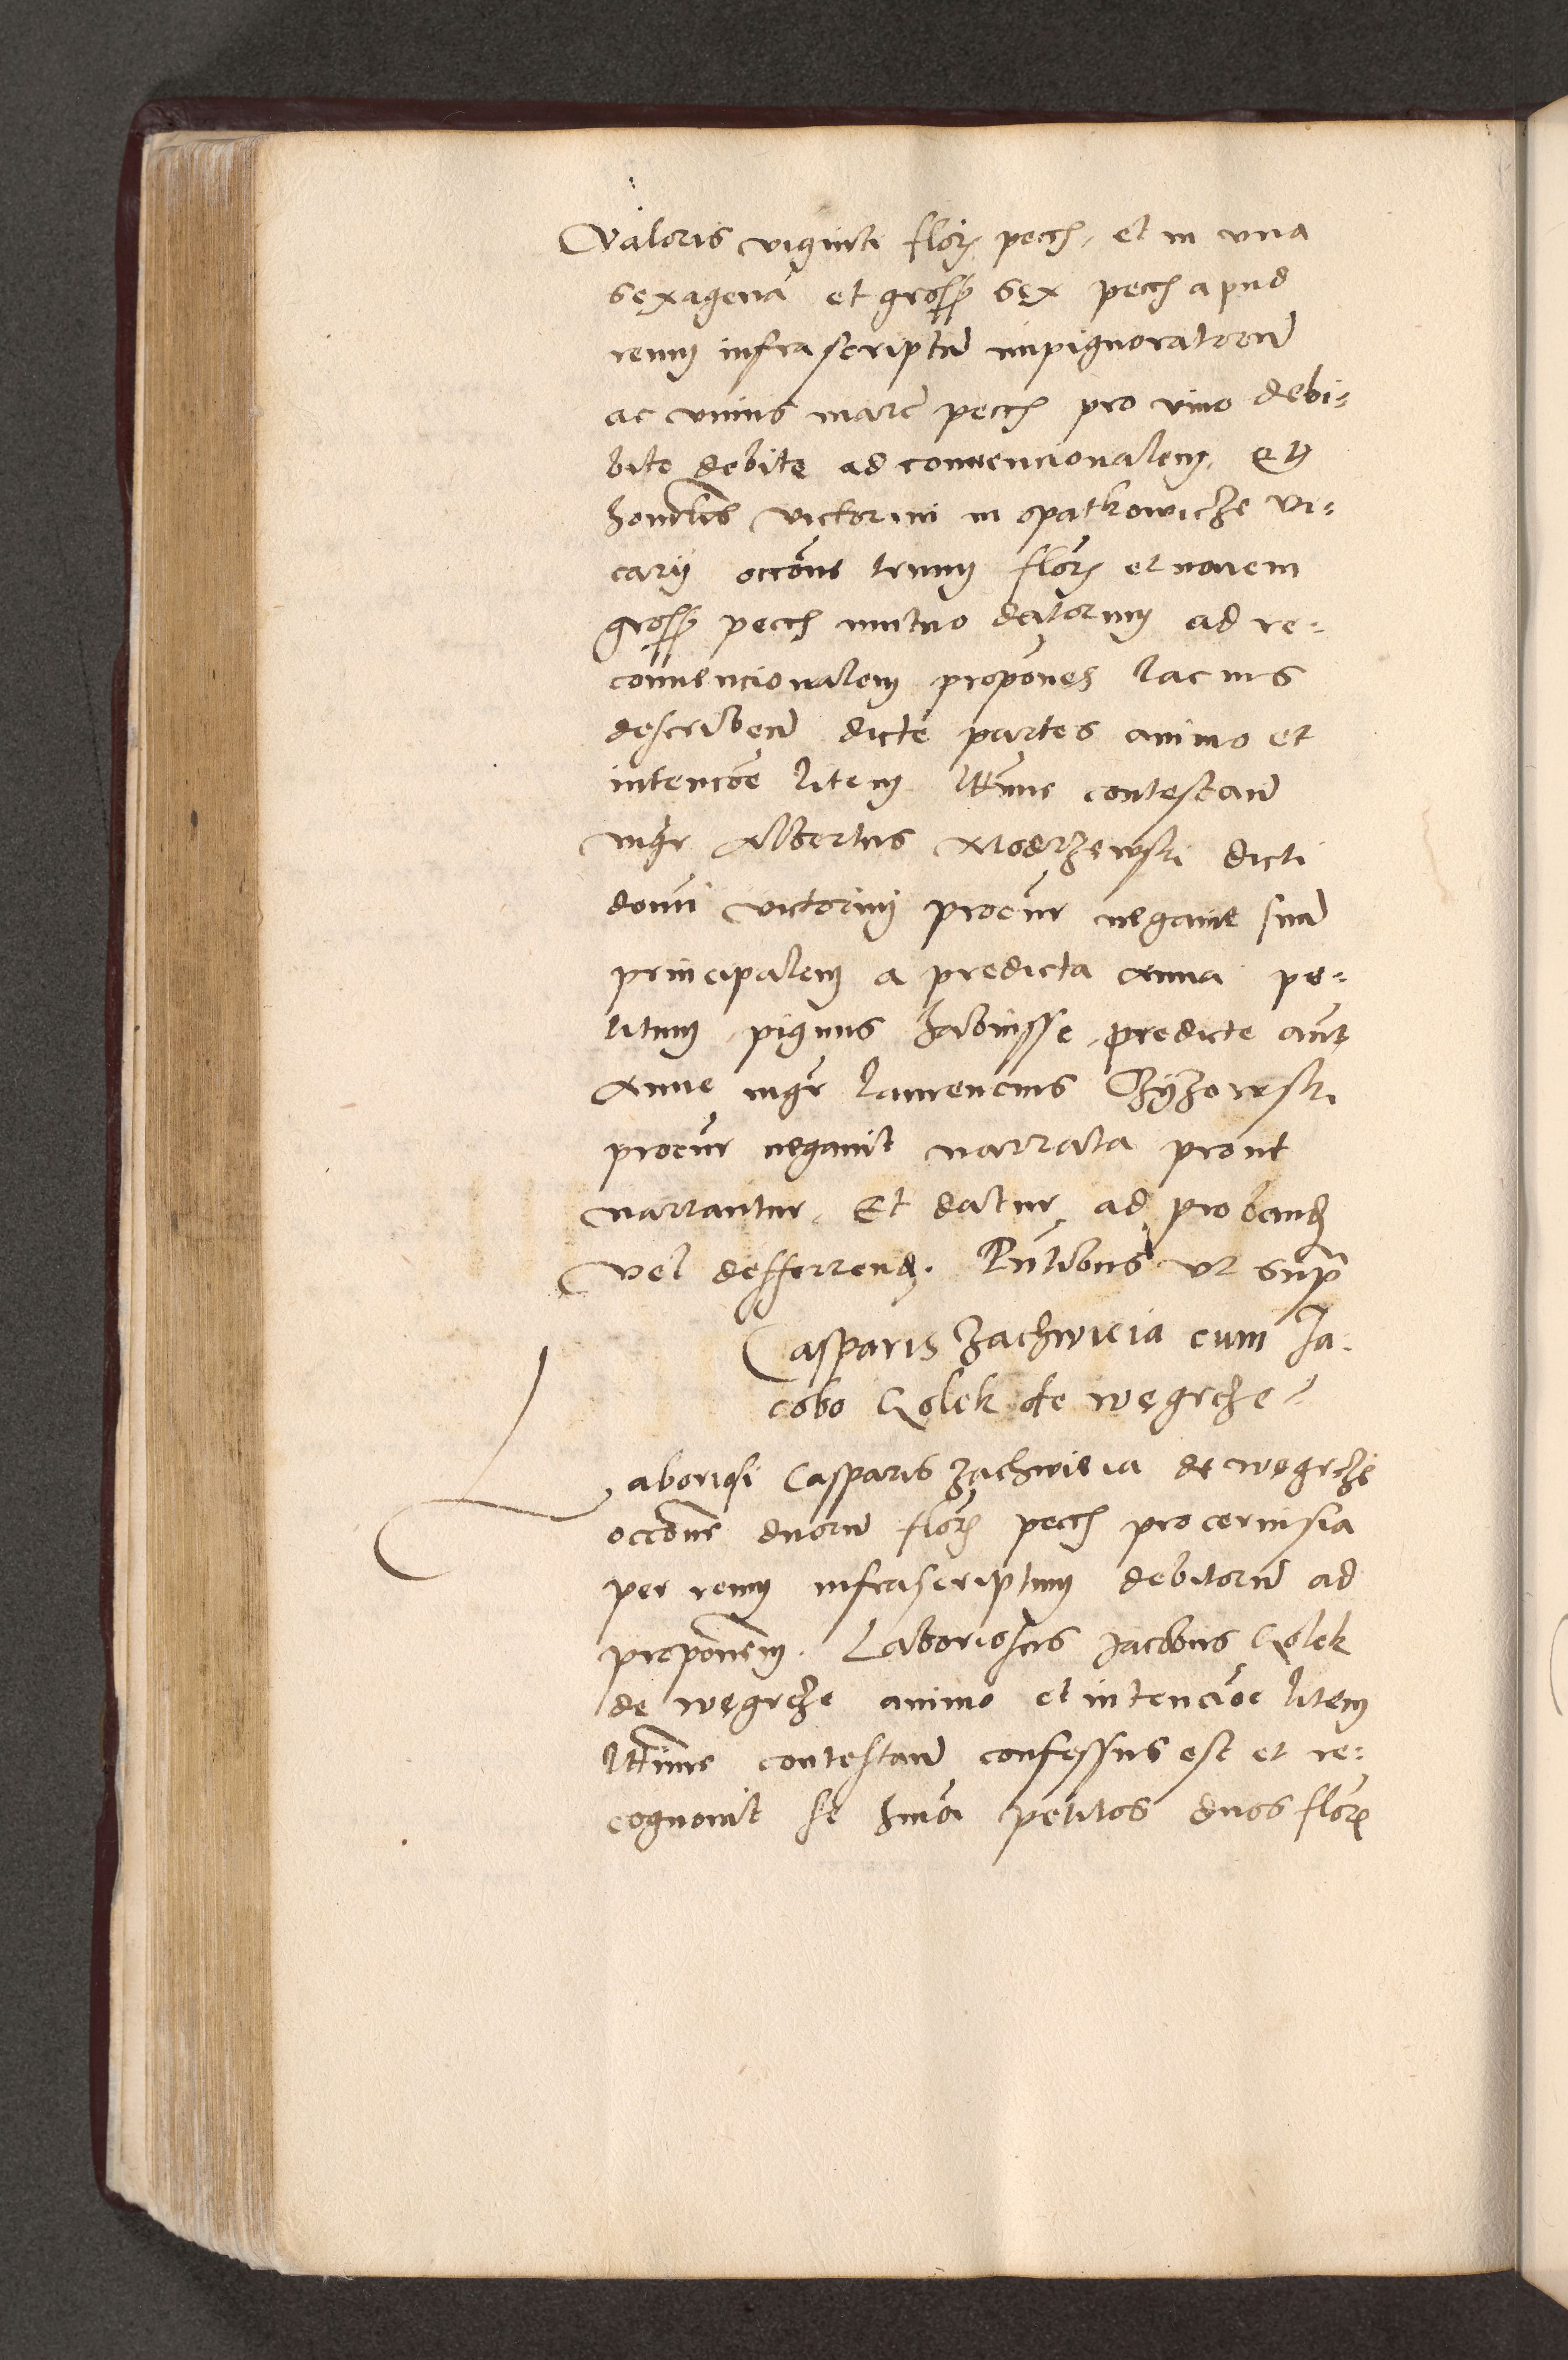 valoris viginti flor pecch, et in vna
sexagena et gross sex pecch apud
reum infrascriptū impignoratorū
ac vnius marc pecch pro vino debi=
bito debite ad conuencionalem, et
honorabilis victorini in opatkowicze vi=
carÿ occōne trium flor et nouem
gross pecch mutuo datorum ad re=
conuencionalem propones lacius
describen dicte partes animo et
intencōe litem lttime contestan
mgr Albertus Modrzewski dicti
domi victorini procur negauit suū
principalem a predicta Anna pe=
titum pignus habuisse, predicte aut
Anne mgr laurencius Czÿzowski
procur negauit narrata prout
narrantur, Et datur ad proband
vel defferrend. Pntibus vt supra
Casparis Zachwieia cum Ja=
cobo Golek de wegrcze
Laboriosi Casparis Zachwieia de wegrcze
occōne duorū flor pecch pro ceruisia
per reum infrascriptum debitorū ad
proponem. Laboriosus Jacobus Golek
de wegrcze animo et intencōe litem
lttime contestan confessus est et re=
cognouit se huiōi petitos duos flor